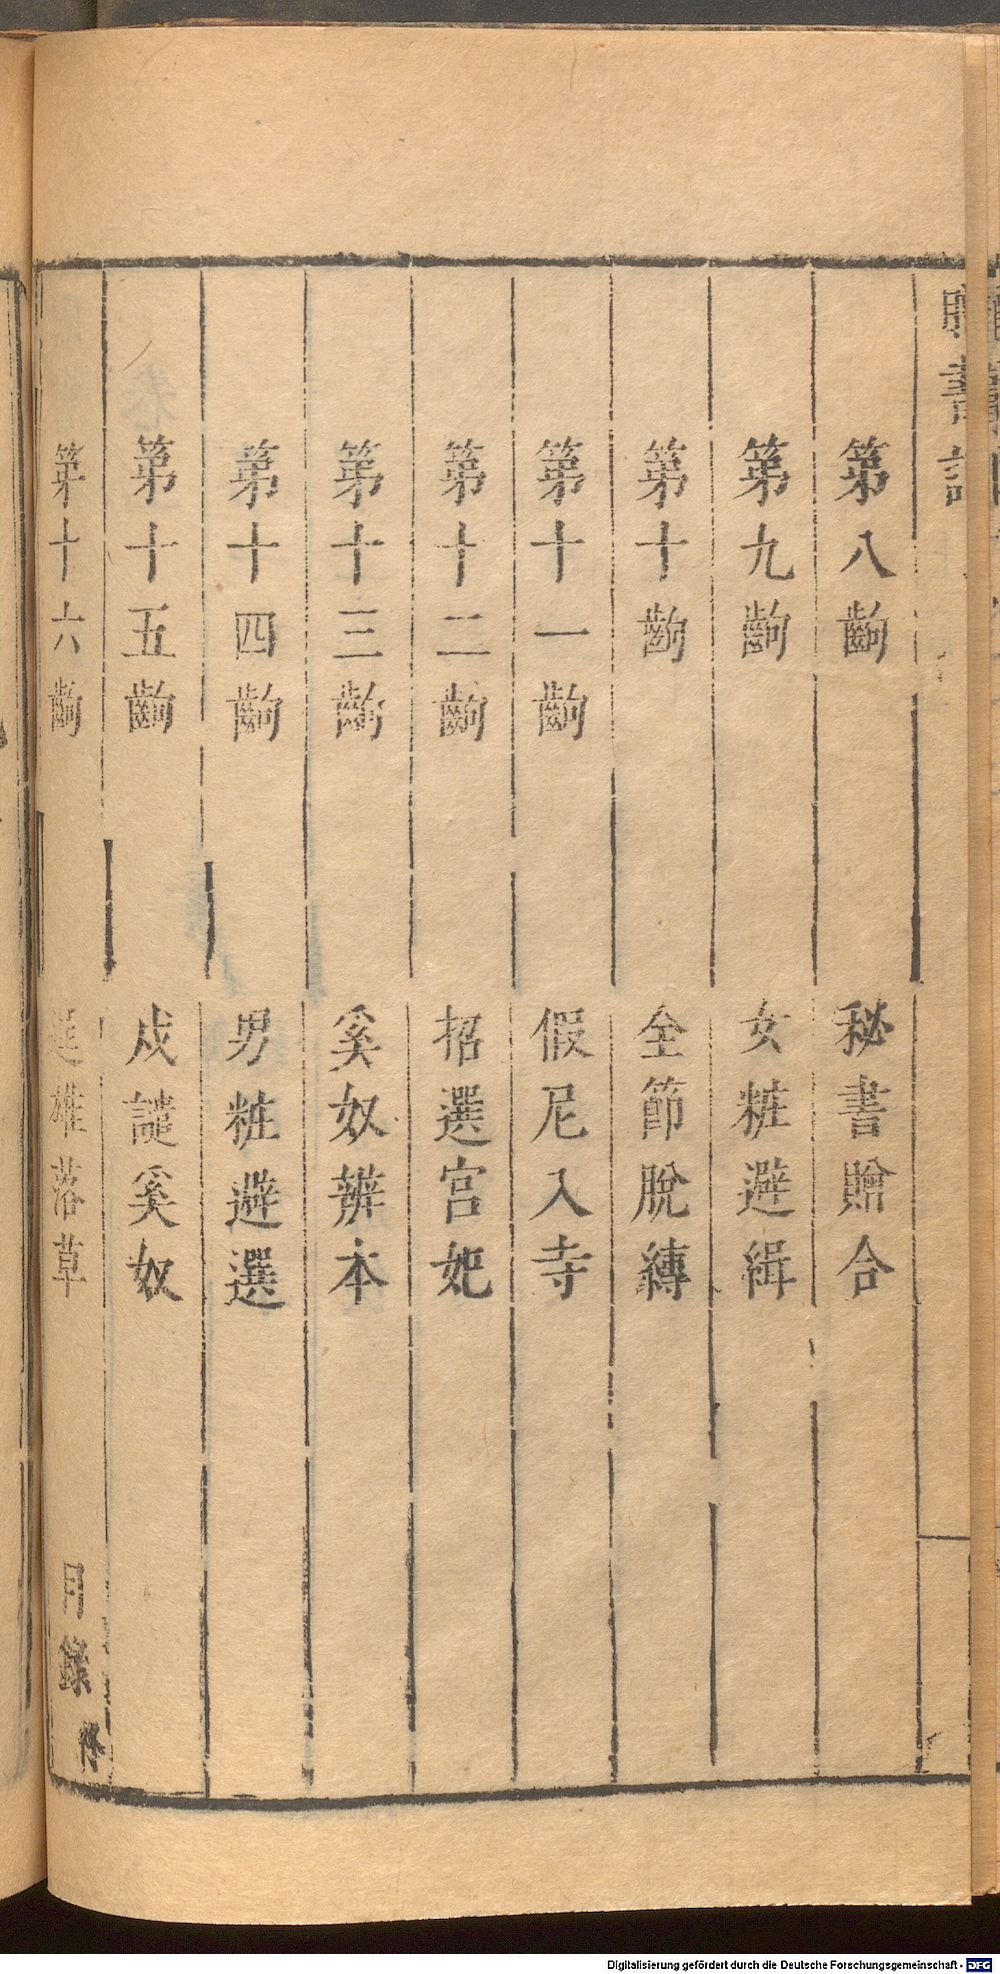 書
第八齣 秘書贈合
第九齣 女粧避緝
第十齣 全節脫縛
第十一齣 假尼入寺
第十二齣 招選宮妃
第十三齣 奚奴辨本
第十四齣 男粧避選
第十五齣 成讉奚奴
第十六齣 雄落草
目錄終
Digitalisierung gefördert durch die Deutsche Forschungsgemeinschaft - DFG